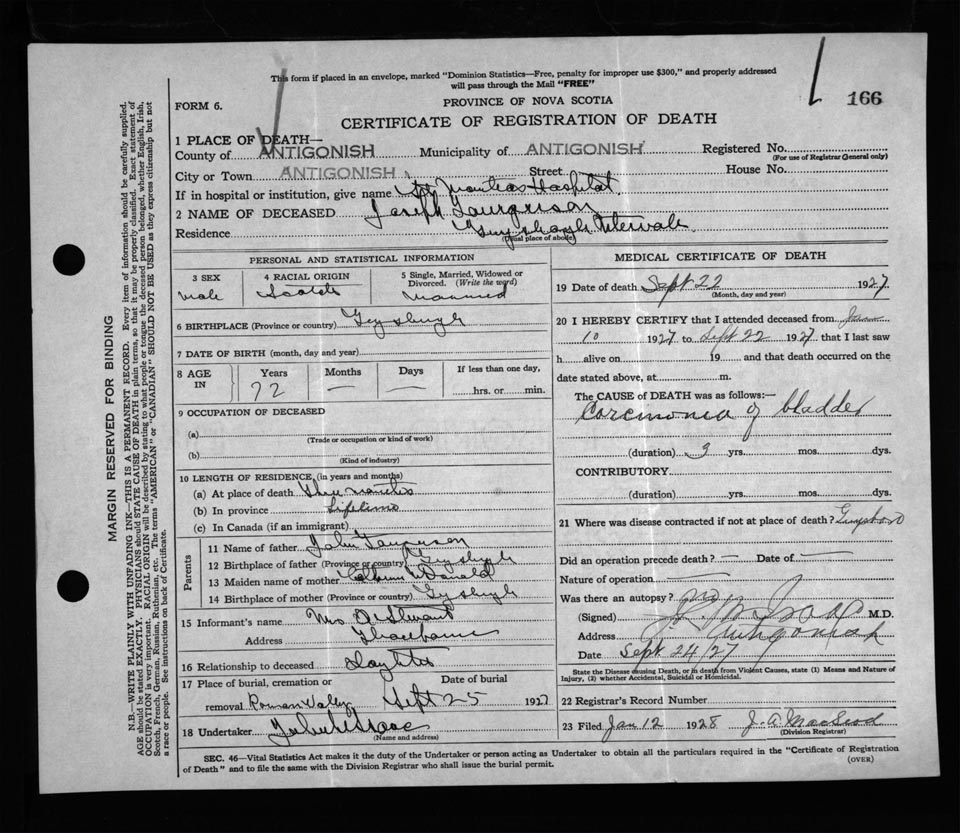 This form if placed in an envelope, marked "Dominion Statistics—Free, penalty for improper use $300," and properly addressed
will pass through the Mail "FREE"
FORM 6.
PROVINCE OF NOVA SCOTIA
166
CERTIFICATE OF REGISTRATION OF DEATH
1 PLACE OF DEATH—
County of ANTIGONISH Municipality of ANTIGONISH Registered No.
(For use of Registrar General only)
City or Town ANTIGONISH Street House No.
If in hospital or institution, give name St Marthas Hospital
2 NAME OF DECEASED Joseph
Residence Guysborough Intervale
(Usual place of abode)
PERSONAL AND STATISTICAL INFORMATION
3 SEX
male
4 RACIAL ORIGIN
Scotch
5 Single, Married, Widowed or
Divorced. (Write the word)
Married
6 BIRTHPLACE (Province or country)
7 DATE OF BIRTH (month, day and year)
8 AGE
IN
Years
72
Months
—
Days
—
If less than one day,
hrs. or min.
9 OCCUPATION OF DECEASED
(a)
(Trade or occupation or kind of work)
(b)
(Kind of industry)
10 LENGTH OF RESIDENCE (in years and months)
(a) At place of death three months
(b) In province Lifetime
(c) In Canada (if an immigrant)
Parents
11 Name of father John
12 Birthplace of father (Province or country)
13 Maiden name of mother
14 Birthplace of mother (Province or country)
15 Informant's name Mrs
Address
16 Relationship to deceased
17 Place of burial, cremation or
removal Roman Valley
Date of burial
Sept 25 1927
18 Undertaker
(Name and address)
MEDICAL CERTIFICATE OF DEATH
19 Date of death Sept 22 1927
(Month, day and year)
20 I HEREBY CERTIFY that I attended deceased from
10 1927 to Sept 22 1927 that I last saw
h alive on 19 and that death occurred on the
date stated above, at m.
The CAUSE of DEATH was as follows:—
of bladder
(duration) 3 yrs. mos. dys.
CONTRIBUTORY
(duration) yrs. mos. dys.
21 Where was disease contracted if not at place of death?
Did an operation precede death? — Date of —
Nature of operation —
Was there an autopsy? no
(Signed) M.D.
Address Antigonish
Date Sept 24/27
State the Disease causing Death, or in death from Violent Causes, state (1) Means and Nature of
Injury, (2) whether Accidental, Suicidal or Homicidal.
22 Registrar's Record Number
23 Filed Jan 12 1928 J. A. MacLeod
(Division Registrar)
SEC. 46—Vital Statistics Act makes it the duty of the Undertaker or person acting as Undertaker to obtain all the particulars required in the "Certificate of Registration
of Death" and to file the same with the Division Registrar who shall issue the burial permit.
(OVER)
MARGIN RESERVED FOR BINDING
N.B.—WRITE PLAINLY WITH UNFADING INK—THIS IS A PERMANENT RECORD. Every item of information should be carefully supplied.
AGE should be stated EXACTLY. PHYSICIANS should STATE CAUSE OF DEATH in plain terms, so that it may be properly classified. Exact statement of
OCCUPATION is very important. RACIAL ORIGIN will be described by stating to what people or tongue the deceased person belonged, whether English, Irish,
Scotch, French, German, Russian, Ruthenian, etc. The terms "AMERICAN" or "CANADIAN" SHOULD NOT BE USED as they express citizenship but not
a race or people. See instructions on back of Certificate.